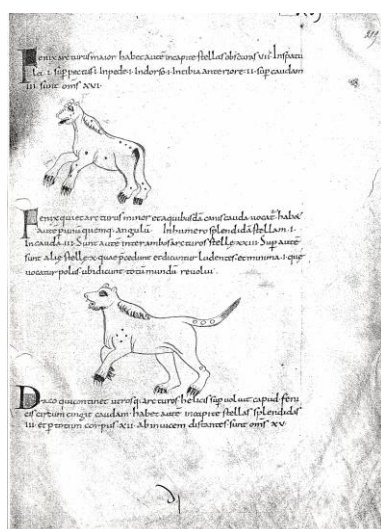 Fenix arcturus maior habet autē incapite stellas obscuras VII. Inspatu
la. I. sup pectus. I. Inpede. I. Indorso. I. Intibia anteriore. II. sup caudam
III. sunt oms XVI.
Fenix qui et arcturus minor et a quibusdā canis cauda vocat habet
autē p unū quemq. angulū Inhumero splendidā stellam. I.
Incauda. III. Sunt autē inter ambos arcturos stelle XXIII. Sup autē
sunt alie stelle X quae p̄cedunt et dicuntur ludentes et minima. I. que
vocatur polus ubi dicunt totū mundū revolui.
Draco qui continet utrosq. arcturos helicis sup voluit capud fenι
cis circum cingit caudam. habet autē incapite stellas splendidas
III. et p totum corpus XII. ab invicem distantes. sunt oms XV.